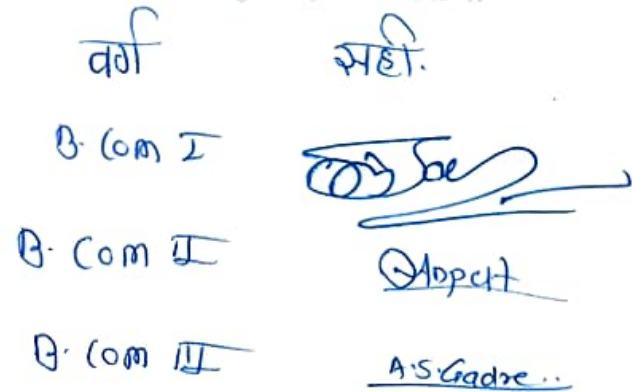 वर्ग सही.
B. Com I
B. Com II
B. Com III A.S.Gadre..